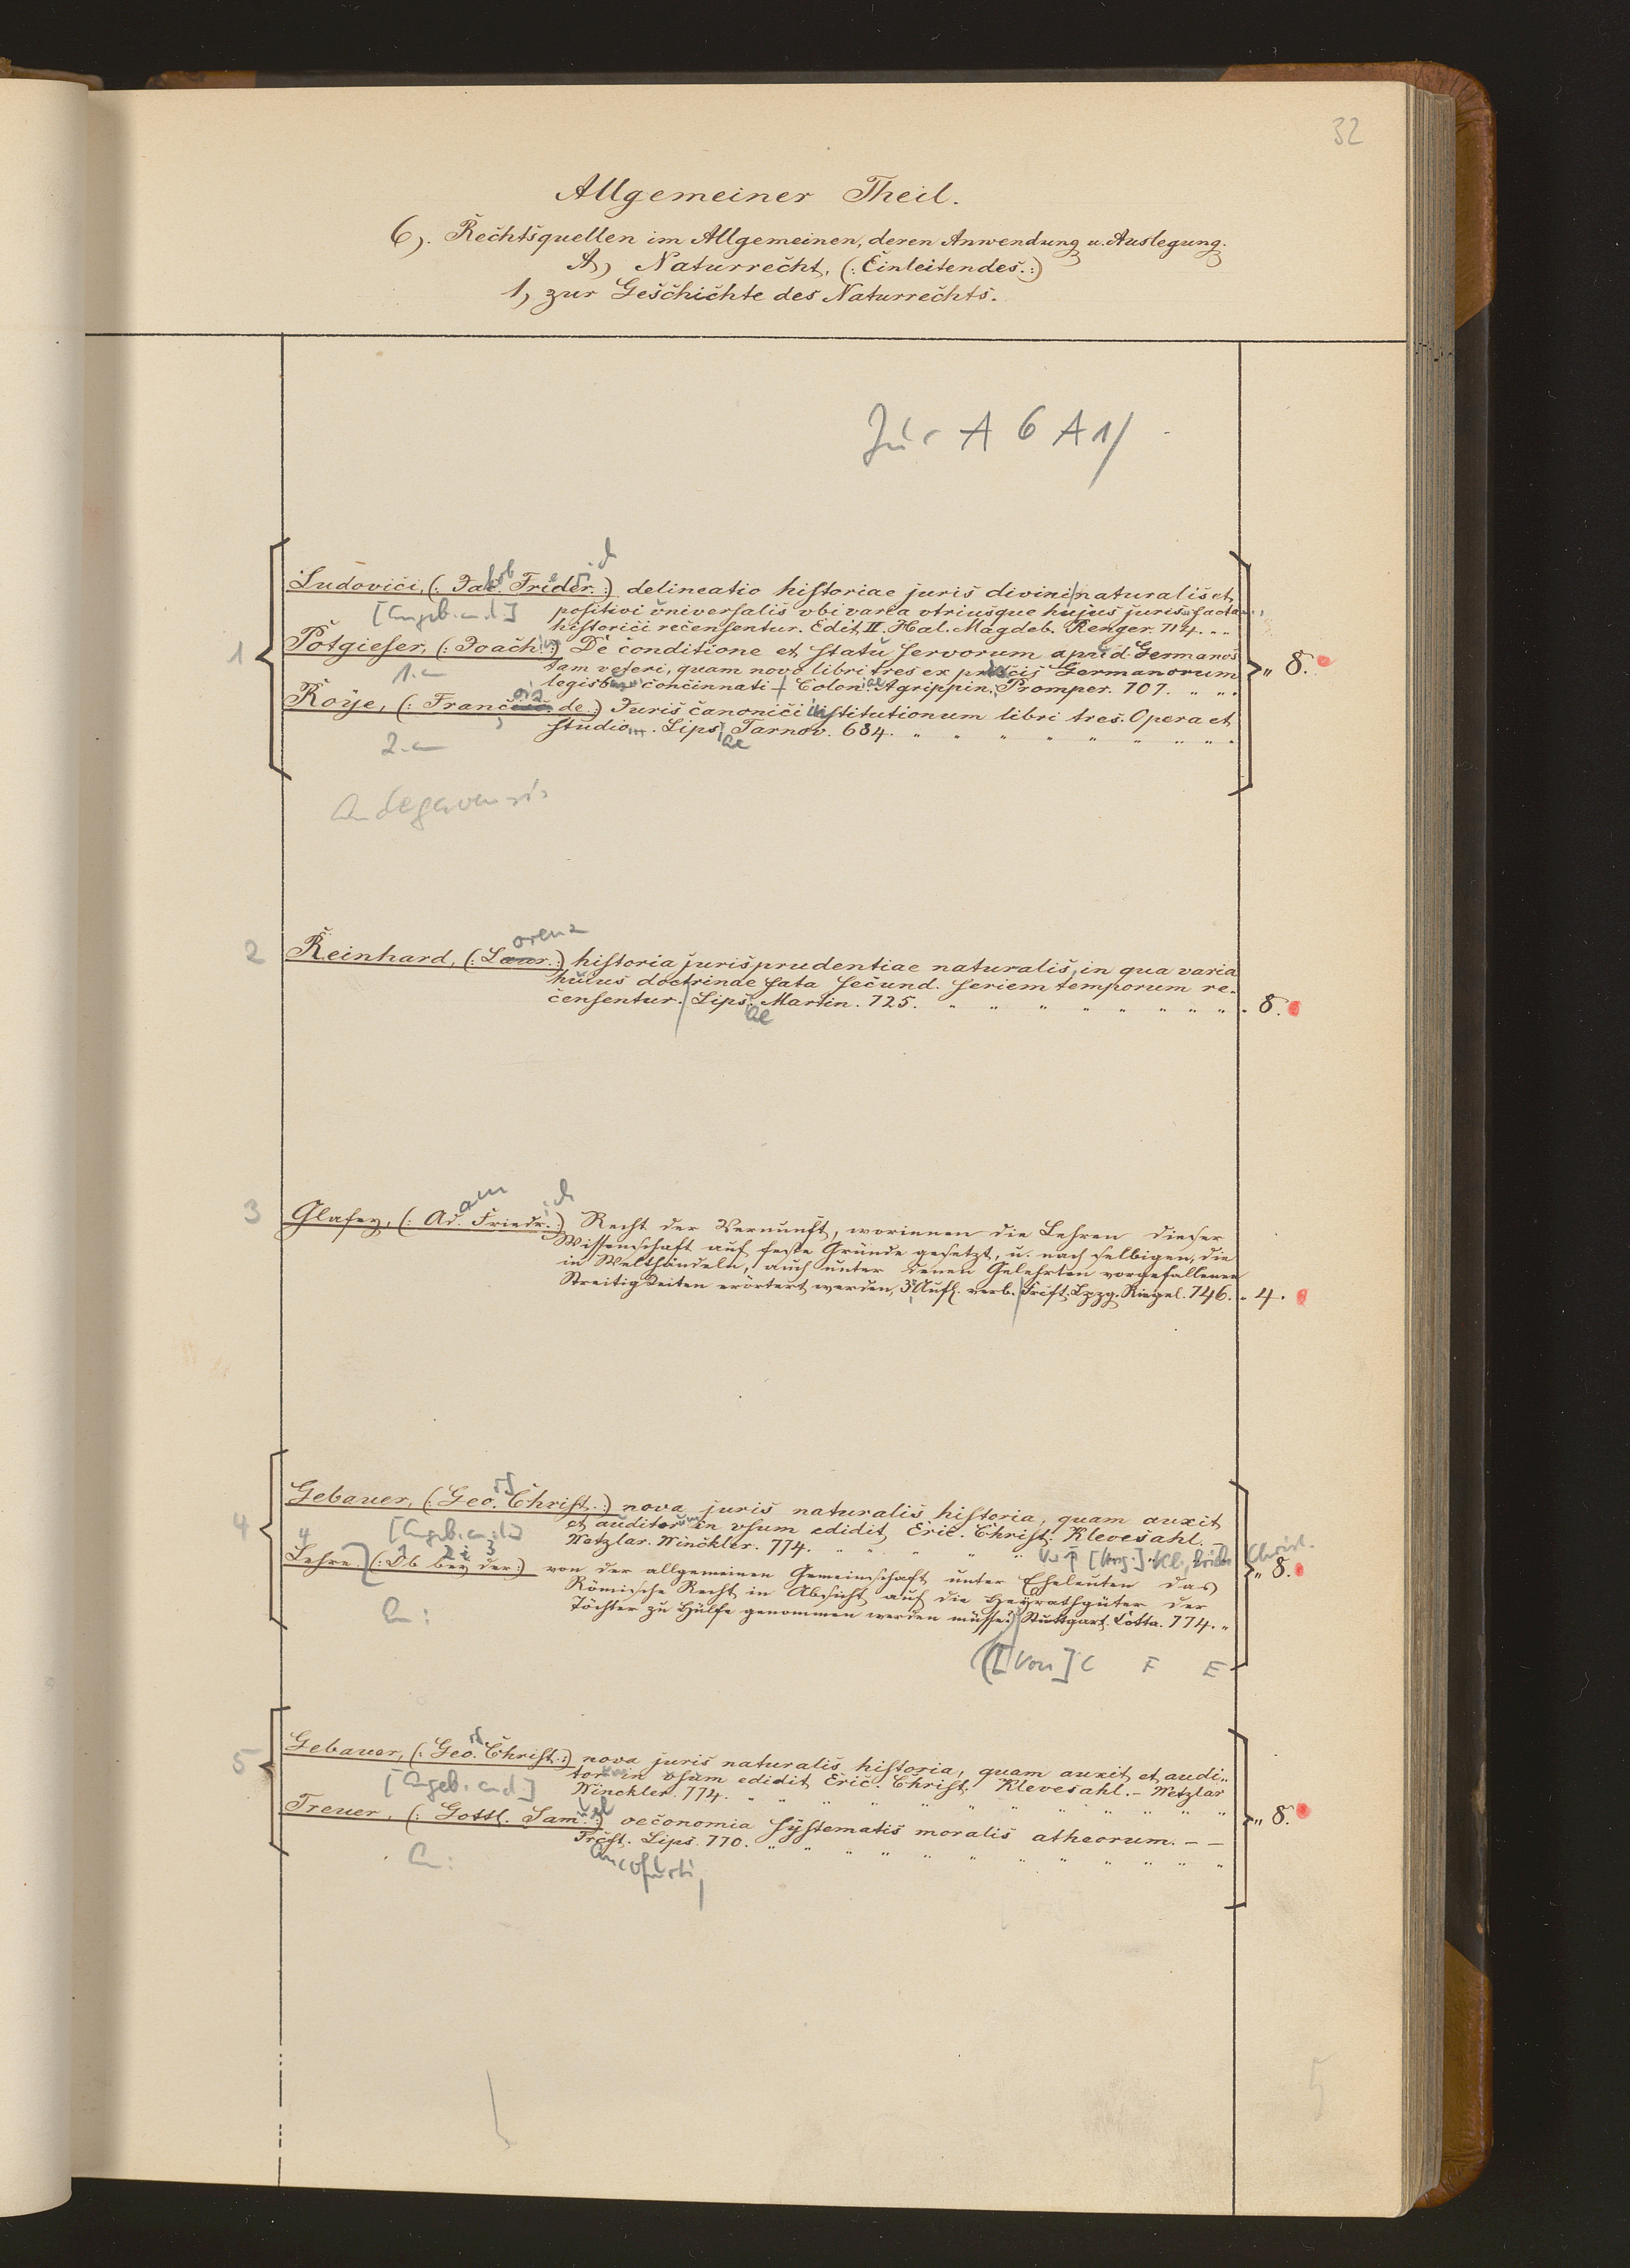 32
Allgemeiner Theil.
6). Rechtsquellen im Allgemeinen, deren Anwendung u. Auslegung.
A) Naturrecht, (: Einleitendes. :)
1, zur Geschichte des Naturrechts.
Jur A 6 A 1/
1
Ludovici, (: Jak. Frieder. :) delineatio historiae juris divini naturalis et
[Angeb. an d.] positivi universalis vbi varia vtriusque hujus juris facta
historici recensentur. Edit. II. Hal. Magdeb. Renger. 714. „ „
Potgieser, (: Joach. :) De conditione et statu servorum apud Germanos
tam veteri, quam novo libri tres ex priscis Germanorum „ 8.
1. an
legib concinnati Colon. Agrippin. Promper. 707. „ „
Roye, (: Franc. de. :) Juris canonici institutionum libri tres. Opera et
studio. Lips. Tarnov. 684. „ „ „ „ „ „ „ „
2. an
Andegavensis
2
Reinhard, (: Laur. :) historia jurisprudentiae naturalis, in qua varia
hulus doctrinae fata secund. seriem temporum re-
censentur. Lips. Martin. 725. „ „ „ „ „ „ „ „ 8.
3
Glafey, (: Ad. Friedr. :) Recht der Vernunft, worinnen die Lehren dieser
Wissenschaft auf feste Gründe gesetzt, u. nach selbigen, die
in Welthändeln, auch unter denen Gelehrten vorgefallenen
Streitigkeiten erörtert werden, 3. Aufl. verb. Frkft. Lpzg. Riegel. 746. „ 4.
4
Gebauer, (: Geo. Christ. :) nova juris naturalis historia, quam auxit
[Angeb. an d.] et auditor in vsum edidit, Eric. Christ. Klevesahl. –
Wetzlar. Winckler. 774. „ „ „ „ „
Vu [Hrsg.] Kl, Erich Christ.
Lehre. (: Ob bey der :) von der allgemeinen Gemeinschaft unter Eheleuten das „ 8.
Römische Recht in Absicht auf die Heyrathgüter der
An:
Töchter zu Hülfe genommen werden müsse? Stuttgart. Cotta. 774. „
([Von] C F E
5
Gebauer, (: Geo. Christ. :) nova juris naturalis historia, quam auxit et audi„
tor in vsum edidit Eric. Christ. Klevesahl. – Wetzlar
[Angeb. an d.]
Winckler. 774. „ „ „ „ „ „ „ „
Treuer, (: Gottl. Sam. :) oeconomia systematis moralis atheorum. – – „ 8.
Frcft. Lips. 770. „ „ „ „ „ „ „ „
An:
ancofurti,
5